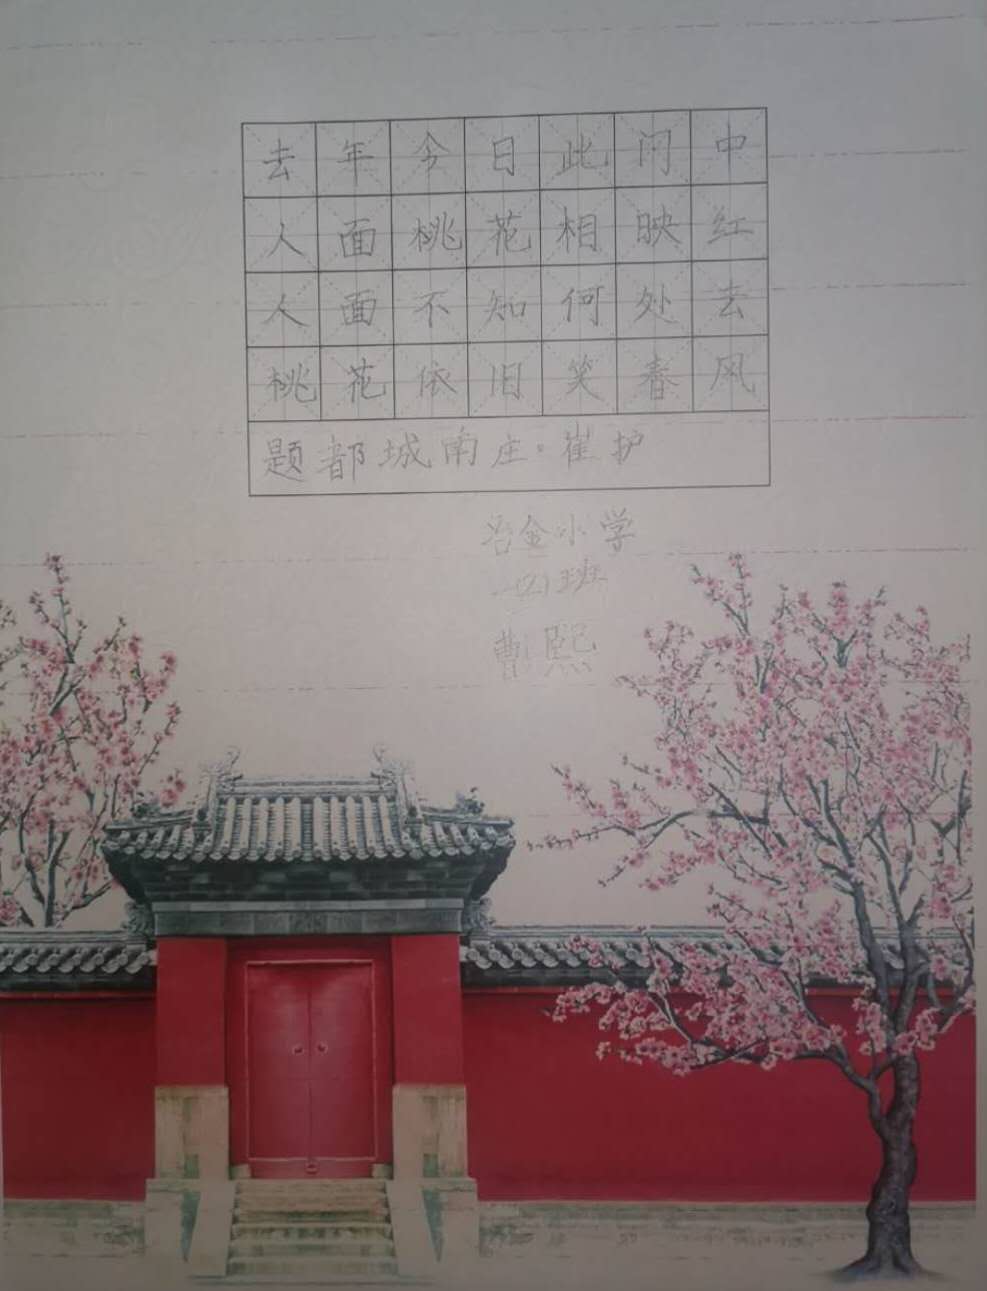 去年今日此门中
人面桃花相映红
人面不知何处去
桃花依旧笑春风
题都城南庄·崔护
冶金小学
一(2)班
曹熙